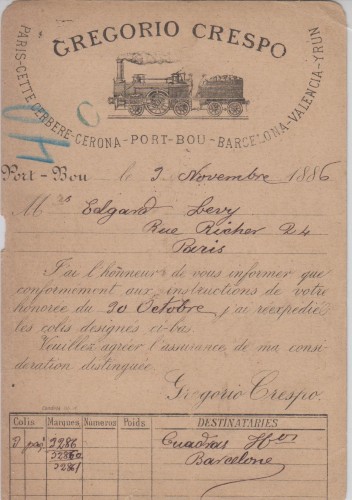 GREGORIO CRESPO
PARIS-CETTE-CERBERE-CERONA-PORT-BOU-BARCELONA-VALENCIA-YRUN
Port-Bou le 3 Novembre 1886
Mrs Edgard Levy
Rue Richer 24
Paris
J'ai l'honneur de vous informer que
conformément aux instructions de votre
honorée du 30 Octobre j'ai réexpédié
les colis designés ci-bas.
Veuillez agréer l'assurance de ma consi
dération distinguée.
Gregorio Crespo.
Colis Marques Numeros Poids DESTINATARIES
3286 Cuadras Hnos
Barcelone